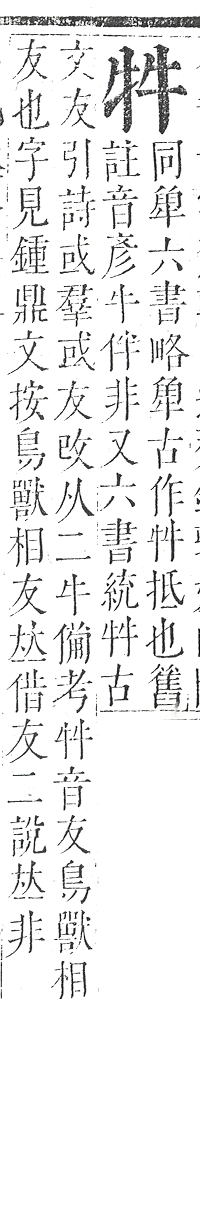 牪
同六書略古作牪抵也舊
註音彥牛伴非又六書統牪古
文友引詩或羣或友改从二牛備考牪音友鳥獸相
友也字見鍾鼎文按鳥獸相友𠀤借友二說𠀤非